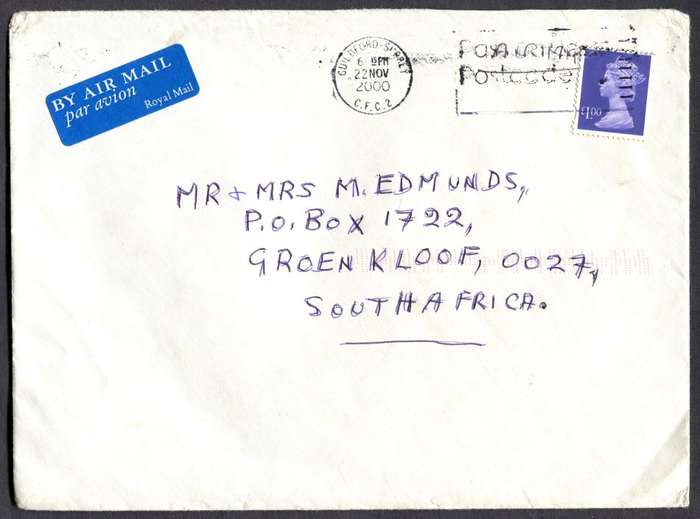 BY AIR MAIL
par avion
Royal Mail
GUILDFORD-SURREY
6 PM
22 NOV
2000
C.F.C. 2
Postcode
£1.00
MR + MRS M. EDMUNDS,
P.O. BOX 1722,
GROENKLOOF, 0027,
SOUTH AFRICA.